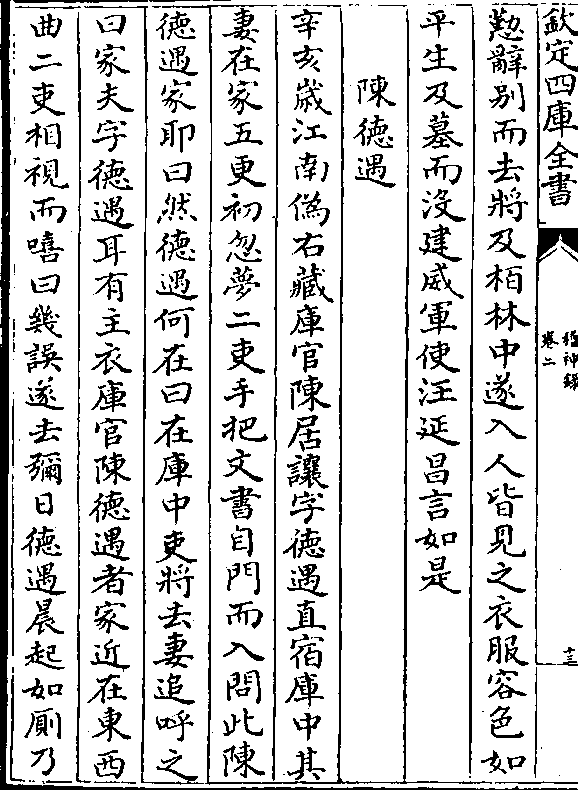 欽定四庫全書
稽神錄
卷二
十三
懃辭别而去將及栢林中遂入人皆見之衣服容色如
平生及墓而没建威軍使汪延昌言如是
陳德遇
辛亥歲江南僞右藏庫官陳居讓字德遇直宿庫中其
妻在家五更初忽夢二吏手把文書自門而入問此陳
德遇家耶曰然德遇何在曰在庫中吏將去妻追呼之
曰家夫字德遇耳有主衣庫官陳德遇者家近在東西
曲二吏相視而嘻曰幾誤遂去彌日德遇晨起如厠乃